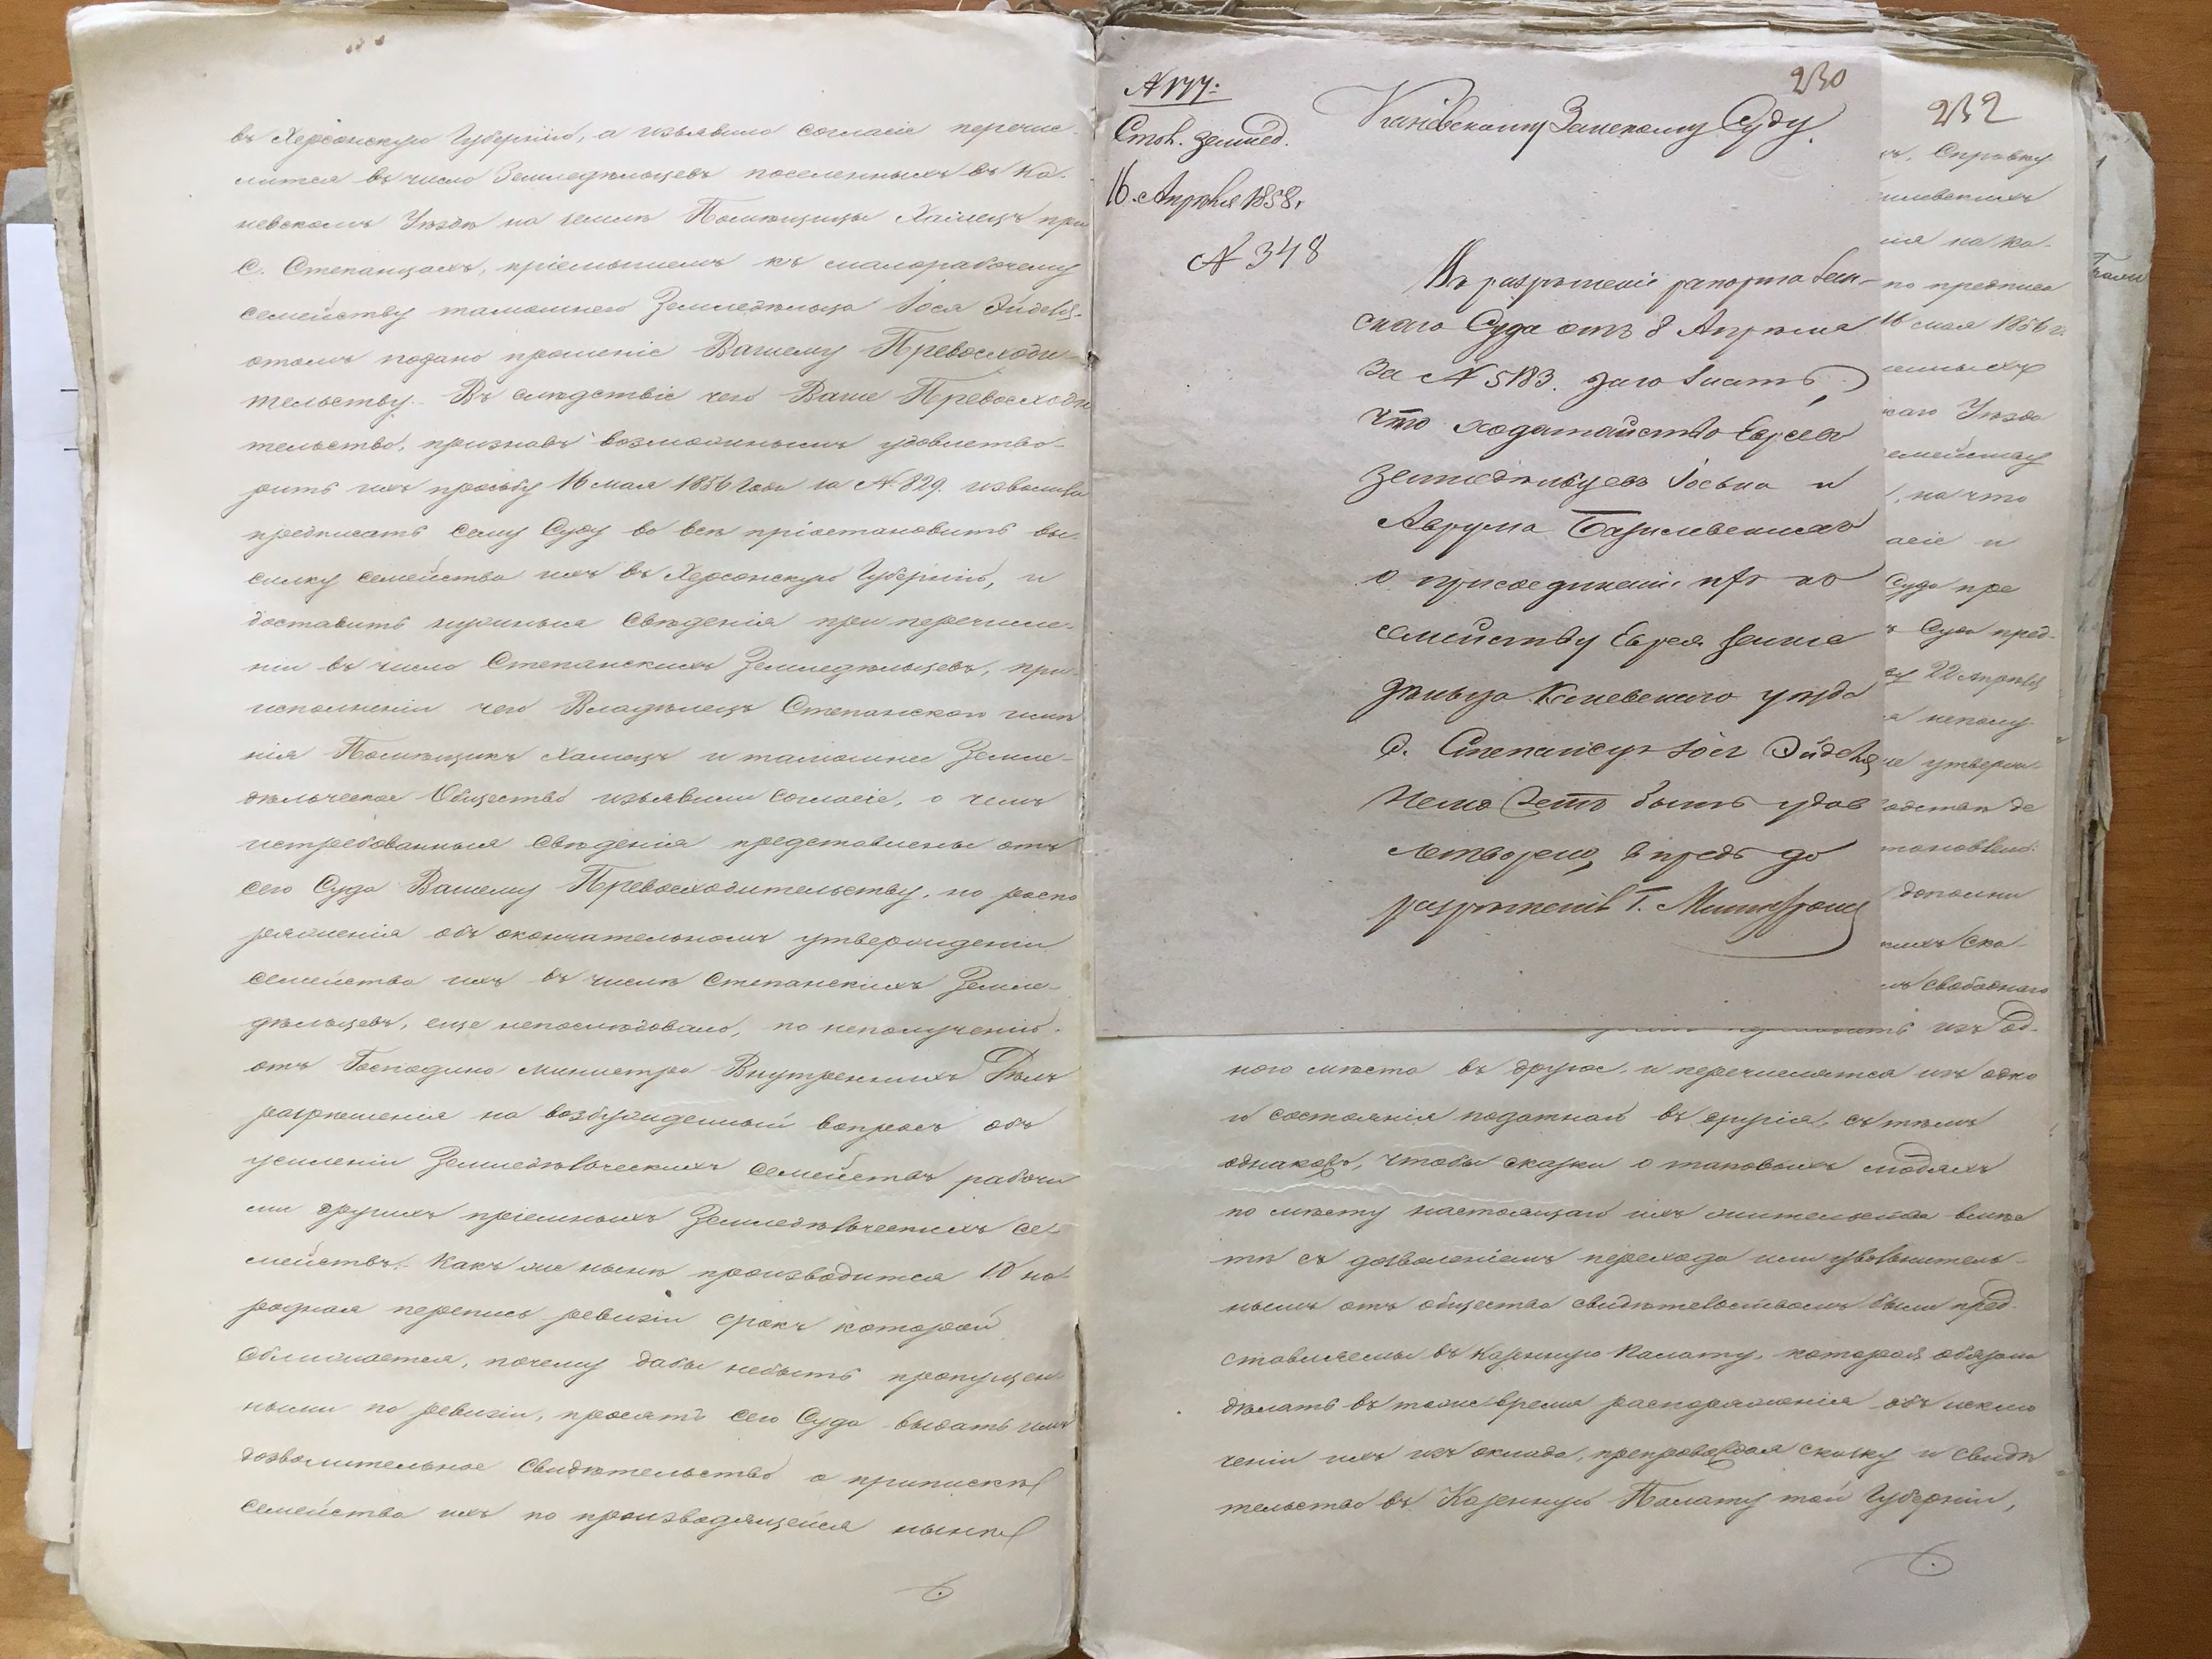 въ Херсонскую Губернію, а изъявило согласіе перечис-
лится въ число Земледѣльцевъ поселенныхъ въ Ка-
невскомъ Уѣздѣ на землѣ Помѣщицы Хаімецъ при
С. Степанцахъ, пріемышемъ къ малорабочему
семейству тамошнего Земледѣльца Іося Эйделя-
отомъ подано прошеніе Вашему Превосходи-
тельству. Въ слѣдствіе чего Ваше Превосходи
тельство, признавъ возможнымъ удовлетво-
рить ихъ просьбу 16 мая 1856 года за № 829. изволили
предписать сему Суду во все пріостановить вы-
силку семейства ихъ въ Херсонскую Губернію, и
доставить нужныя Свѣденія при перечисле-
ніи въ число Степанскихъ Земледѣльцевъ, при
исполненіи чего Владѣлецъ Степанского имѣ
нія Помѣщикъ Хамецъ и тамошнее Земле-
дѣльческое Общество изъявили согласіе, о чемъ
истребованныя свѣденія представлены отъ
сего Суда Вашему Превосходительству, но распо
ряженія объ окончательномъ утвержденіи
семейства ихъ въ числѣ Степанскихъ Земле-
дѣльцевъ, еще непослѣдовало, по неполученію
отъ Господина Министра Внутреннихъ Дѣлъ
разрѣшенія на возбужденный вопросъ объ
усиленіи Земледѣльческихъ семействъ рабочи
ми другихъ пріемныхъ Земледѣльческихъ се-
мействъ. Какъ же нынѣ производится 10 на-
родная перепись ревизіи срокъ которой
сближается, почему дабы небыть пропущен-
ными по ревизіи, просятъ сего Суда выдать имъ
дозволительное свидѣтельство о припискѣ
семейства ихъ по производящейся нынѣ
№ 177:
Стол. землед.
16. Апрѣля 1858.
№ 348
230
Каневскому Земскому Суду.
Въ разрѣшеніе рапорта Зем-
скаго Суда отъ 8 Апрѣля
За № 5183. даю знать,
что ходатайство Евреевъ
земледѣльцевъ Іосья и
Аврума Базилевскихъ
о присоединеніи ихъ ко
семейству Еврея Земле
дѣльца Каневскаго уѣзда
С. Степанецъ Іося Эйделя
Неможетъ быть удов
летворено, впредь до
разрѣшенія Г. Министромъ
232
Справку
на ка-
по предписа
16 мая 1856 г.
скаго Уѣзда
семейству
, на что
асіе и
Суда пре
Суда пред-
22 Апрѣля
неполу
утверж-
дополни
свободнаго
изъ од-
ного мѣста въ другое, и перечисляются изъ одно
и состоянія податнаго въ другія, съ тѣмъ
однакожъ, чтобы сказки о таковыхъ людяхъ
по мѣсту настоящаго ихъ жительства вмѣс
тѣ съ дозволеніемъ перехода или увольнитель-
нымъ отъ общества свидѣтельствомъ были пред-
ставляемы въ Казенную Палату, которая обязана
дѣлать въ тоже время распоряженія объ исклю
ченіи ихъ изъ оклада, препровождая сказку и свидѣ
тельство въ Казенную Палату той Губерніи,